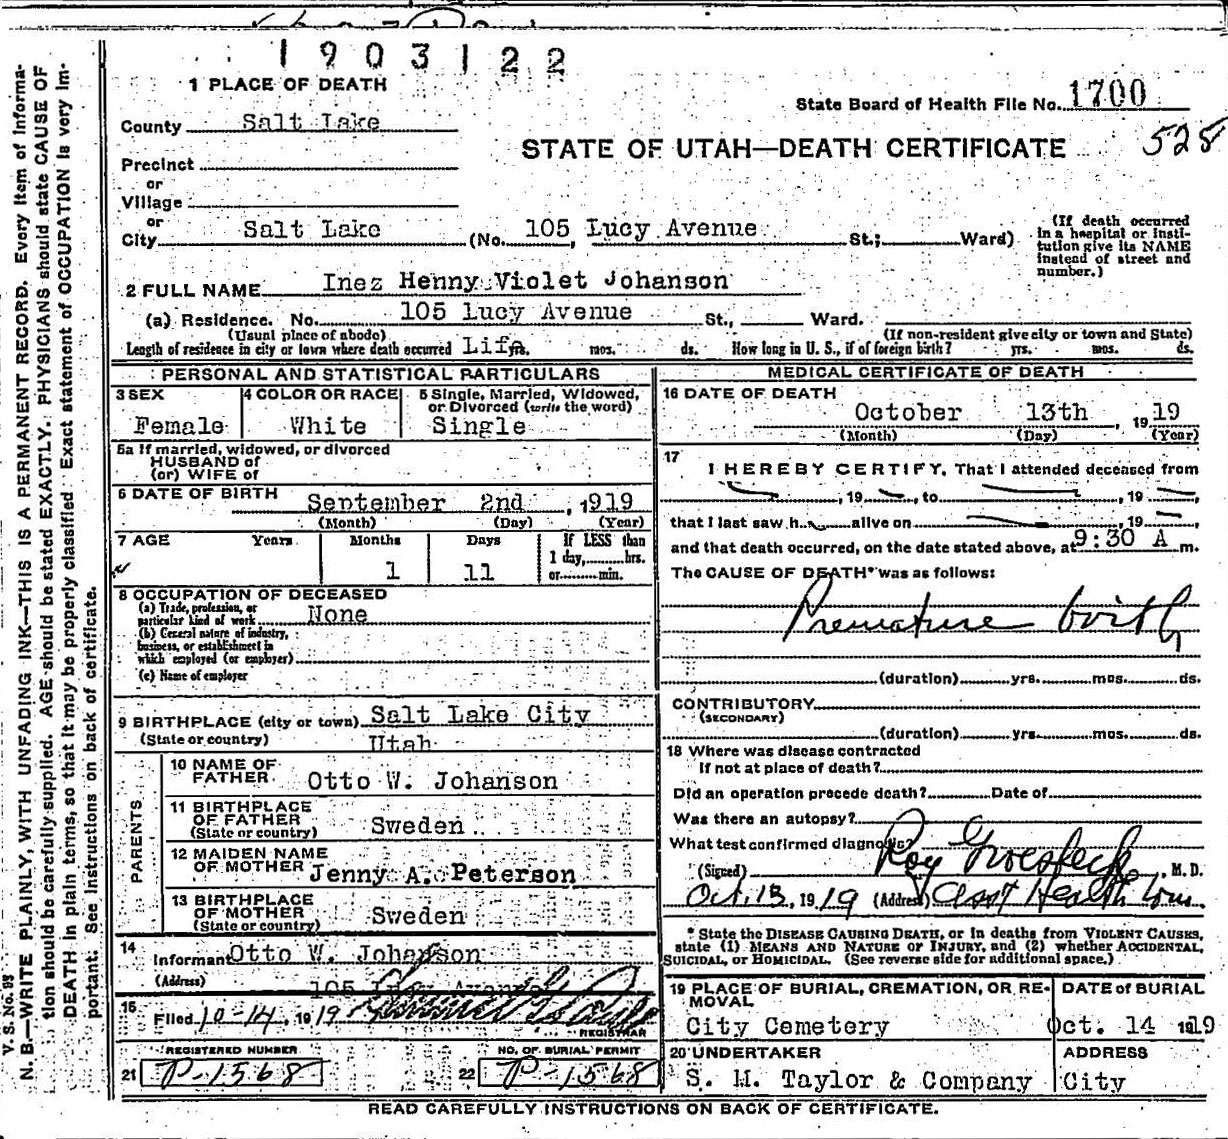 1903122
1 PLACE OF DEATH
State Board of Health File No. 1700
County Salt Lake
STATE OF UTAH—DEATH CERTIFICATE 528
Precinct
or
Village
or
City Salt Lake (No. 105 Lucy Avenue St.; Ward)
(If death occurred in a hospital or institution give its NAME instead of street and number.)
2 FULL NAME Inez Henny Violet Johanson
(a) Residence. No. 105 Lucy Avenue St., Ward.
(Usual place of abode) (If non-resident give city or town and State)
Length of residence in city or town where death occurred Life yrs. mos. ds. How long in U. S., if of foreign birth? yrs. mos. ds.
PERSONAL AND STATISTICAL PARTICULARS
3 SEX 4 COLOR OR RACE 5 Single, Married, Widowed, or Divorced (write the word)
Female White Single
5a If married, widowed, or divorced
HUSBAND of
(or) WIFE of
6 DATE OF BIRTH September 2nd, 1919
(Month) (Day) (Year)
7 AGE Years Months Days If LESS than
1 day, hrs.
or min.
1 11
8 OCCUPATION OF DECEASED
(a) Trade, profession, or
particular kind of work None
(b) General nature of industry,
business, or establishment in
which employed (or employer)
(c) Name of employer
9 BIRTHPLACE (city or town) Salt Lake City
(State or country) Utah
PARENTS
10 NAME OF
FATHER Otto W. Johanson
11 BIRTHPLACE
OF FATHER
(State or country) Sweden
12 MAIDEN NAME
OF MOTHER Jenny A. Peterson
13 BIRTHPLACE
OF MOTHER
(State or country) Sweden
14
Informant Otto W. Johanson
(Address) 105 Lucy Avenue
15
Filed 10-14, 1919
REGISTRAR
REGISTERED NUMBER NO. OF BURIAL PERMIT
21 P-1568 22 P-1568
MEDICAL CERTIFICATE OF DEATH
16 DATE OF DEATH
October 13th, 1919
(Month) (Day) (Year)
17
I HEREBY CERTIFY, That I attended deceased from
, 19 , to , 19 ,
that I last saw h alive on , 19 ,
and that death occurred, on the date stated above, at 9:30 A m.
The CAUSE OF DEATH* was as follows:
Premature birth
(duration) yrs. mos. ds.
CONTRIBUTORY
(SECONDARY)
(duration) yrs. mos. ds.
18 Where was disease contracted
If not at place of death?
Did an operation precede death? Date of
Was there an autopsy?
What test confirmed diagnosis?
(Signed) Roy Groesbeck, M. D.
Oct. 13, 1919 (Address) Asst Health Com.
* State the DISEASE CAUSING DEATH, or in deaths from VIOLENT CAUSES,
state (1) MEANS AND NATURE OF INJURY, and (2) whether ACCIDENTAL,
SUICIDAL, or HOMICIDAL. (See reverse side for additional space.)
19 PLACE OF BURIAL, CREMATION, OR RE-
MOVAL
DATE of BURIAL
City Cemetery Oct. 14 1919
20 UNDERTAKER ADDRESS
S. M. Taylor & Company City
READ CAREFULLY INSTRUCTIONS ON BACK OF CERTIFICATE.
V. S. No. 93
N. B—WRITE PLAINLY, WITH UNFADING INK—THIS IS A PERMANENT RECORD. Every item of informa-
tion should be carefully supplied. AGE should be stated EXACTLY. PHYSICIANS should state CAUSE OF
DEATH in plain terms, so that it may be properly classified. Exact statement of OCCUPATION is very im-
portant. See instructions on back of certificate.